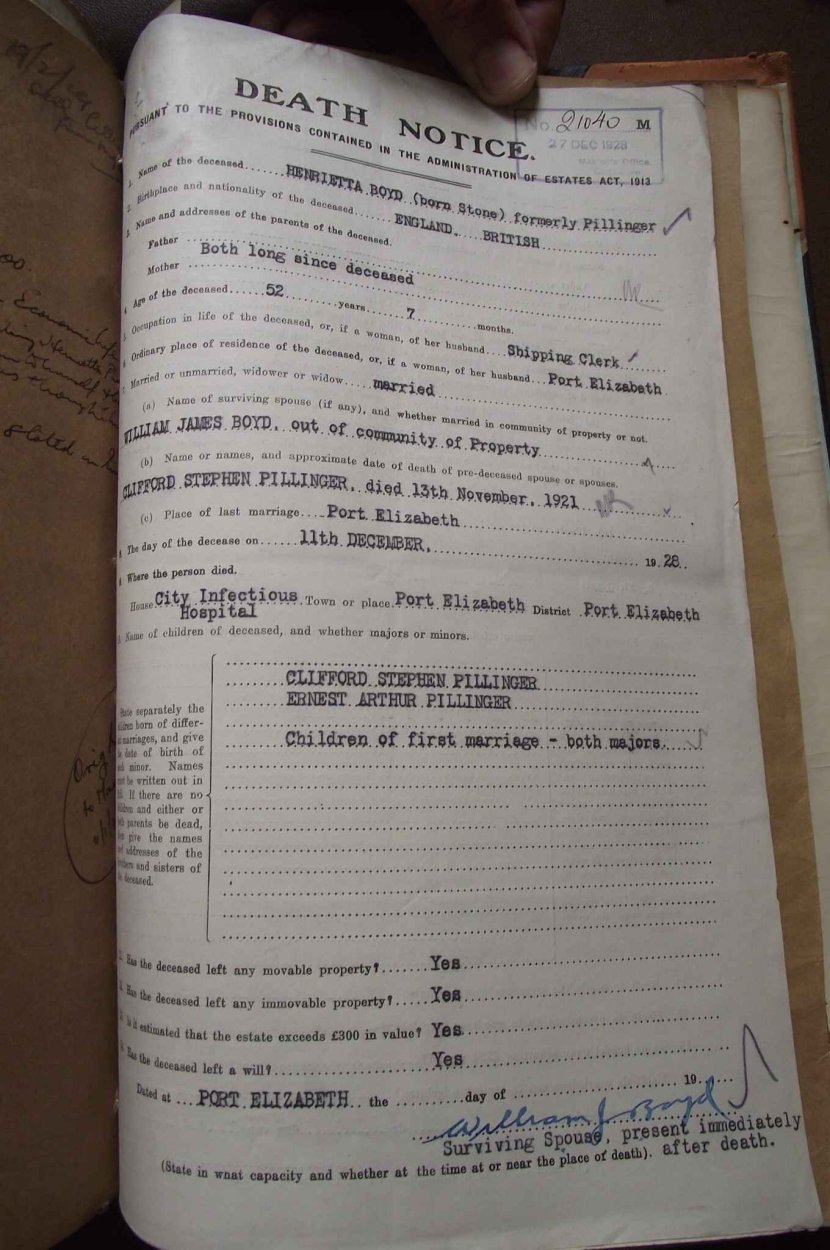 DEATH NOTICE.
No. 21040 M
27 DEC 1928
PURSUANT TO THE PROVISIONS CONTAINED IN THE ADMINISTRATION OF ESTATES ACT, 1913
1. Name of the deceased HENRIETTA BOYD (born Stone) formerly Pillinger
2. Birthplace and nationality of the deceased ENGLAND. BRITISH
3. Name and addresses of the parents of the deceased.
Father
Both long since deceased
Mother
4. Age of the deceased 52 years 7 months.
5. Occupation in life of the deceased, or, if a woman, of her husband Shipping Clerk
6. Ordinary place of residence of the deceased, or, if a woman, of her husband Port Elizabeth
7. Married or unmarried, widower or widow married
(a) Name of surviving spouse (if any), and whether married in community of property or not.
WILLIAM JAMES BOYD, out of community of Property
(b) Name or names, and approximate date of death of pre-deceased spouse or spouses.
CLIFFORD STEPHEN PILLINGER, died 13th November, 1921
(c) Place of last marriage Port Elizabeth
8. The day of the decease on 11th DECEMBER, 1928
9. Where the person died.
House City Infectious Town or place Port Elizabeth District Port Elizabeth
Hospital
Name of children of deceased, and whether majors or minors.
CLIFFORD STEPHEN PILLINGER
ERNEST ARTHUR PILLINGER
Children of first marriage - both majors
State separately the
children born of differ-
marriages, and give
date of birth of
minor. Names
be written out in
If there are no
children and either or
parents be dead,
give the names
addresses of the
and sisters of
deceased.
Has the deceased left any movable property? Yes
Has the deceased left any immovable property? Yes
Is it estimated that the estate exceeds £300 in value? Yes
Has the deceased left a will? Yes
Dated at PORT ELIZABETH the day of 19
William J Boyd
Surviving Spouse, present immediately
after death.
(State in what capacity and whether at the time at or near the place of death).